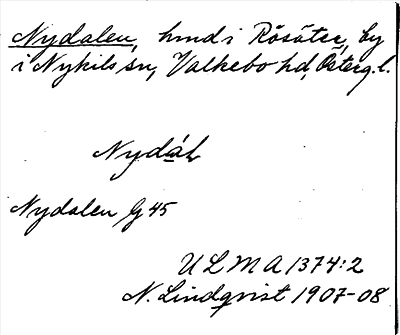 Nydalen, hmd i Rösäter, by
i Nykils sn, Valkebo hd, Österg. l.
Nydáɫ
Nydalen G 45
ULMA 1374:2
N. Lindqvist 1907-08